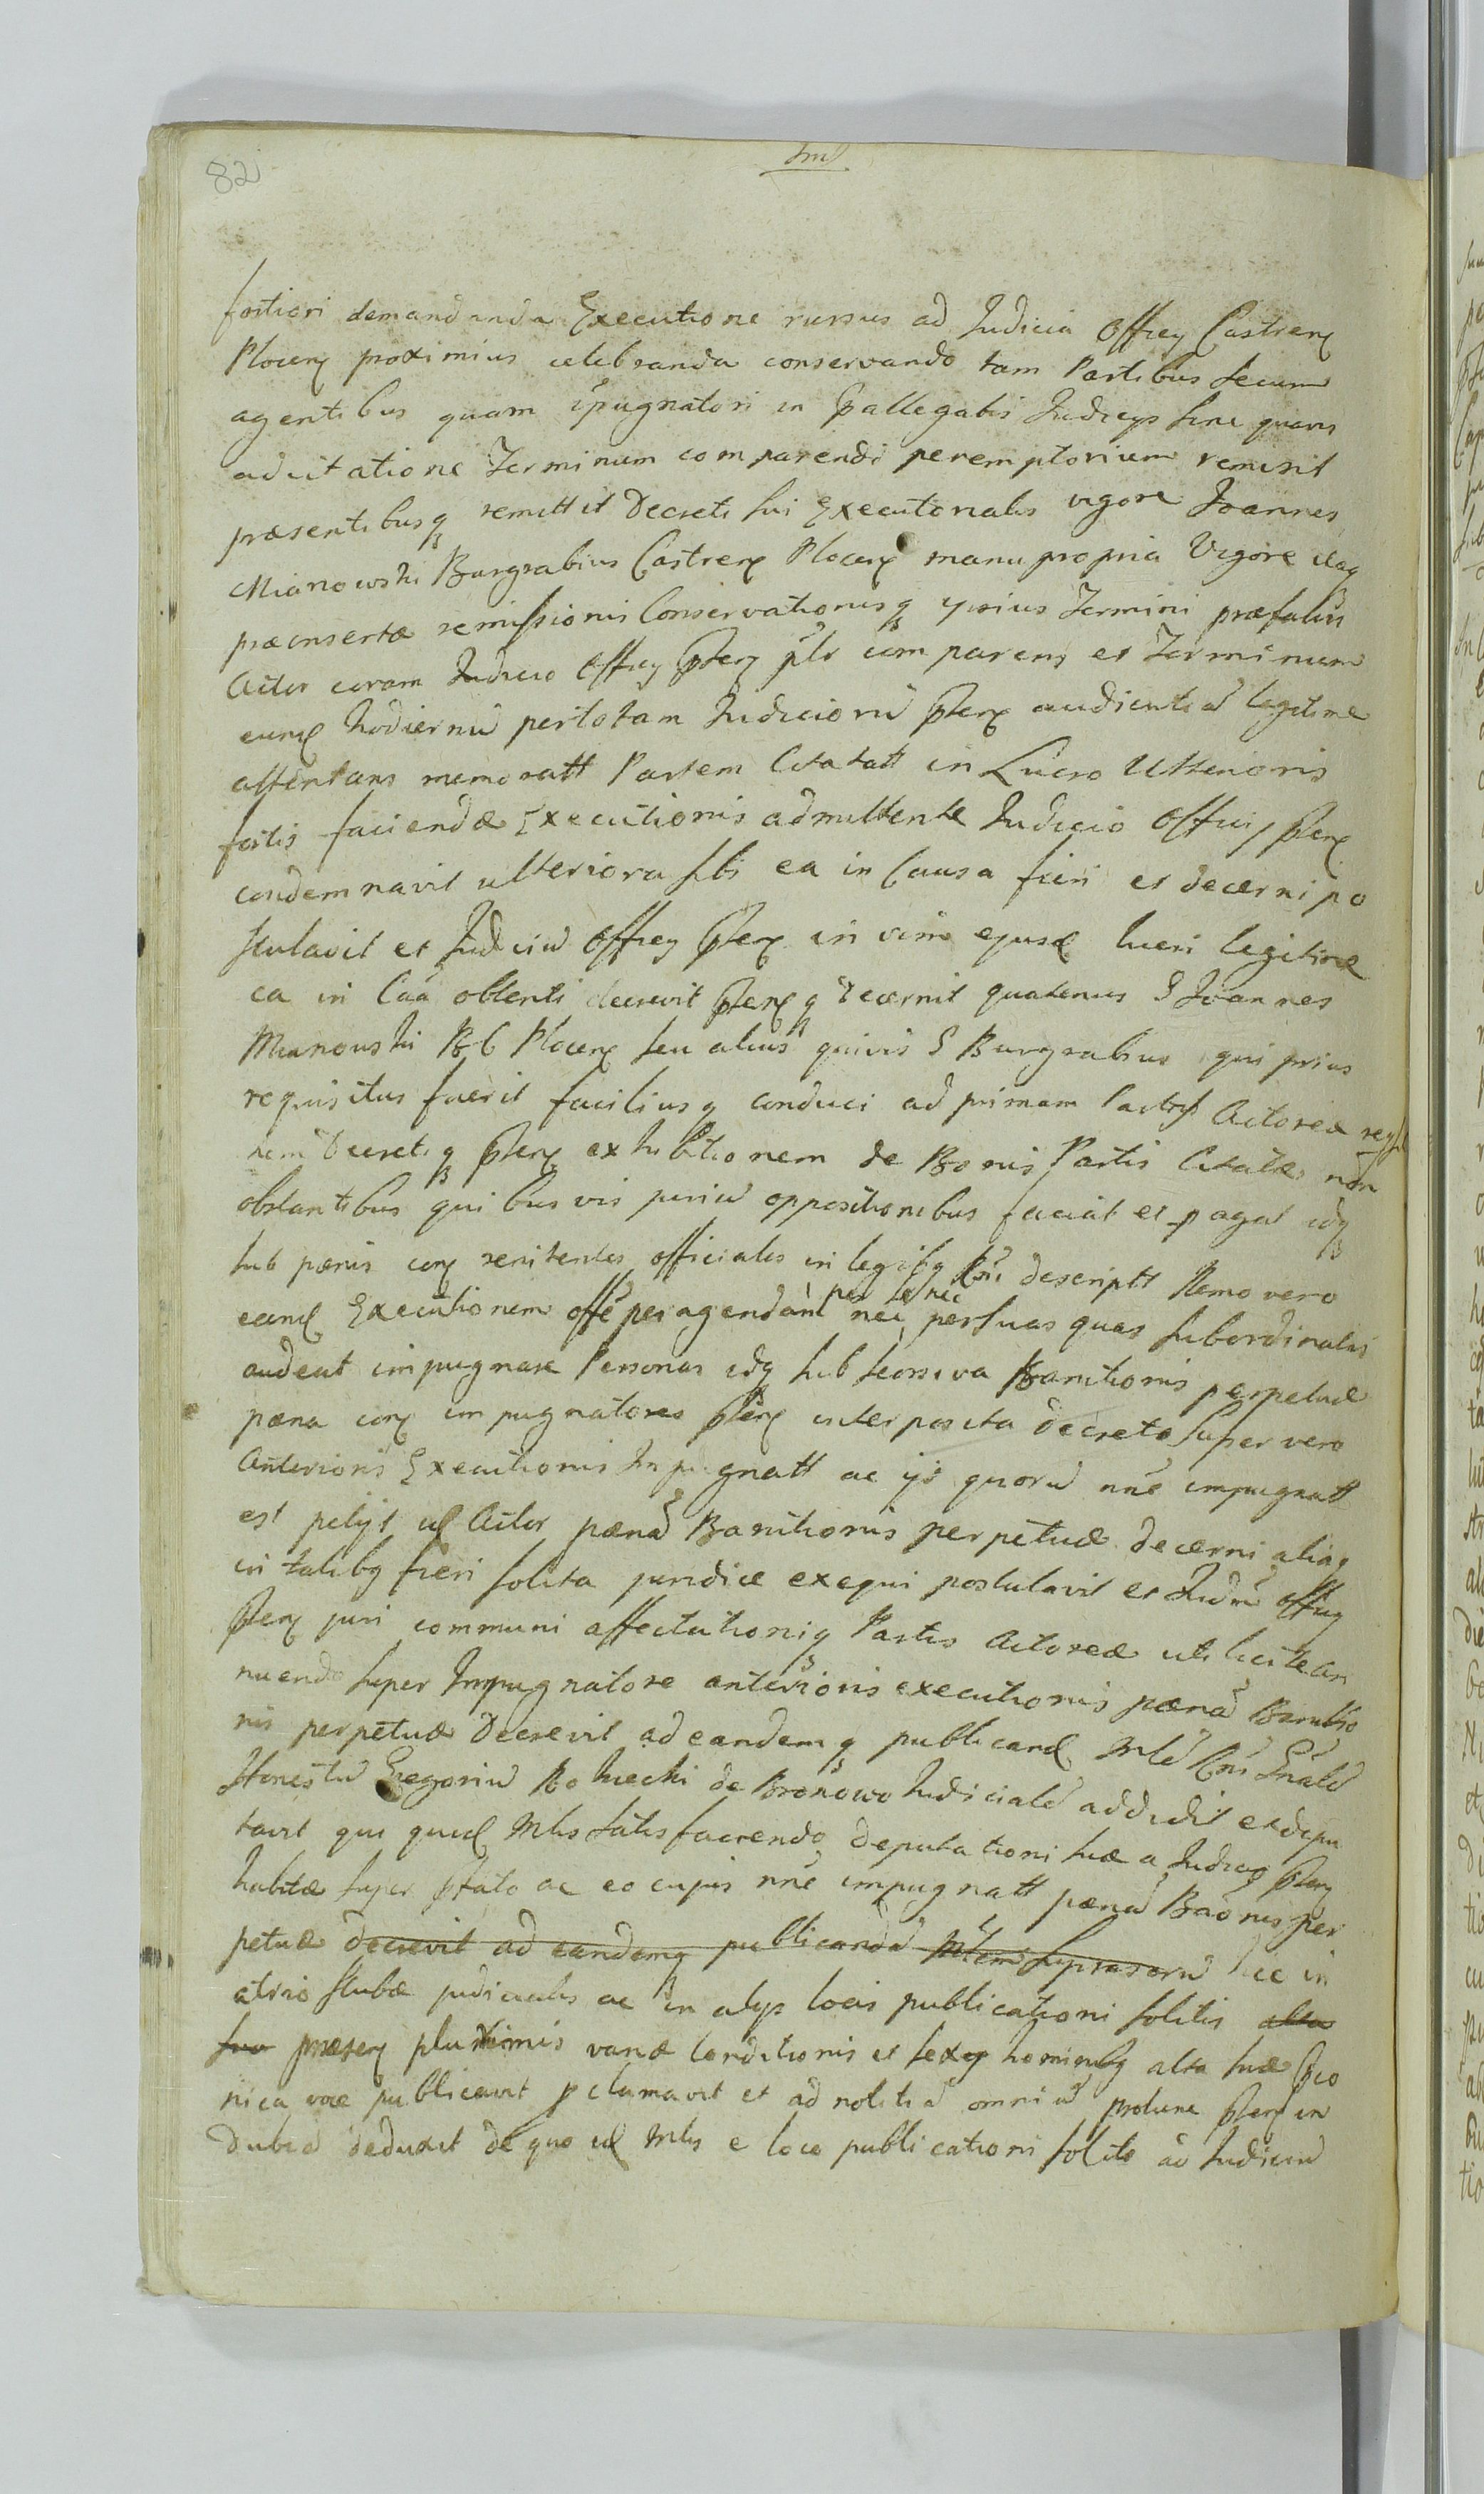 82
fortiori demandanda Executione rursus ad Judicia Officy Castren
Plocen proximius celebranda conservando tam Partibus secum
agentibus quam ipugnatori in pallegatis Judicys sine quavis
adcitatione Terminum comparendi peremptorium remisit
præsentibusq remittit Decreti sui Executorialis vigore Joannes
Mianowski Burgrabius Castren Plocen manu propria Vigore itaq
præinsertæ remissionis Conservationisq ipsius Termini præfatus
Actor coram Judicio Officy pten plr comparens et Terminum
eund hodiernu per totam Judicioru pten audientia legitime
attentans memoratt Partem Citatatt in Lucro Ulterioris
fortis faciendæ Executionis admittente Judicio Officy pten
condemnavit ulteriora sibi ea in Causa fieri et decerni po
stulavit et Judiciu Officy pten in vim ejusd lucri legitime
ea in Caa obtenti decrevit ptenq decernit quatenus G Joannes
Mianowski B C Plocen seu alius quivis G Burgrabius qui prius
requisitus fuerit faciliusq conduci ad primam Partis Actoreæ reqsi
nem Decretiq pten exhibitionem de Bonis Partis Citatæ non
obstantibus quibusvis juriu oppositionibus faciat et pagat idq
sub pænis con renitentes officiales in legibq Rni descriptt Nemo vero
eand Executionem offe peragendam nec per se nec per suas quas subordinatas
audeat impugnare Personas idq sub seorsiva Banitionis perpetuæ
pæna con impugnatores pten interposita decreto Super vero
Anterioris Executionis Impugnatt ac ijs quoru nne impugnatt
est petyt id Actor pæna Banitionis perpetuæ decerni aliaq
in talibq fieri solita juridice exequi postulavit et Judm Officy
pten juri communi affectationiq Partis Actoreæ uti licitæ an
nuendo super Impugnatore anterioris executionis pæna Banitio
nis perpetuæ Decrevit ad eandemq publicand Mle Rni Gnale
Honestu Gregoriu Rokucki de Bronowo Judiciale addidit et depu
tavit qui quid Mlis satisfaciendo deputationi suæ a Judicio pten
habitæ super ptato ac eo cujus nne impugnatt pæna Baonis per
petuæ decrevit ad eandemq publicanda Mlem suprascru hic in
atrio stubæ judicialis ac in alys locis publicationi solitis alta
sua præsen plurimis variæ Conditionis et sexq hominibq alta suæ Geo
nica voce publicavit pclamavit et ad notitia omniu protunc pten in
dubia deduxit de quo id Mlis e loco publicationi solito ad Judiciu